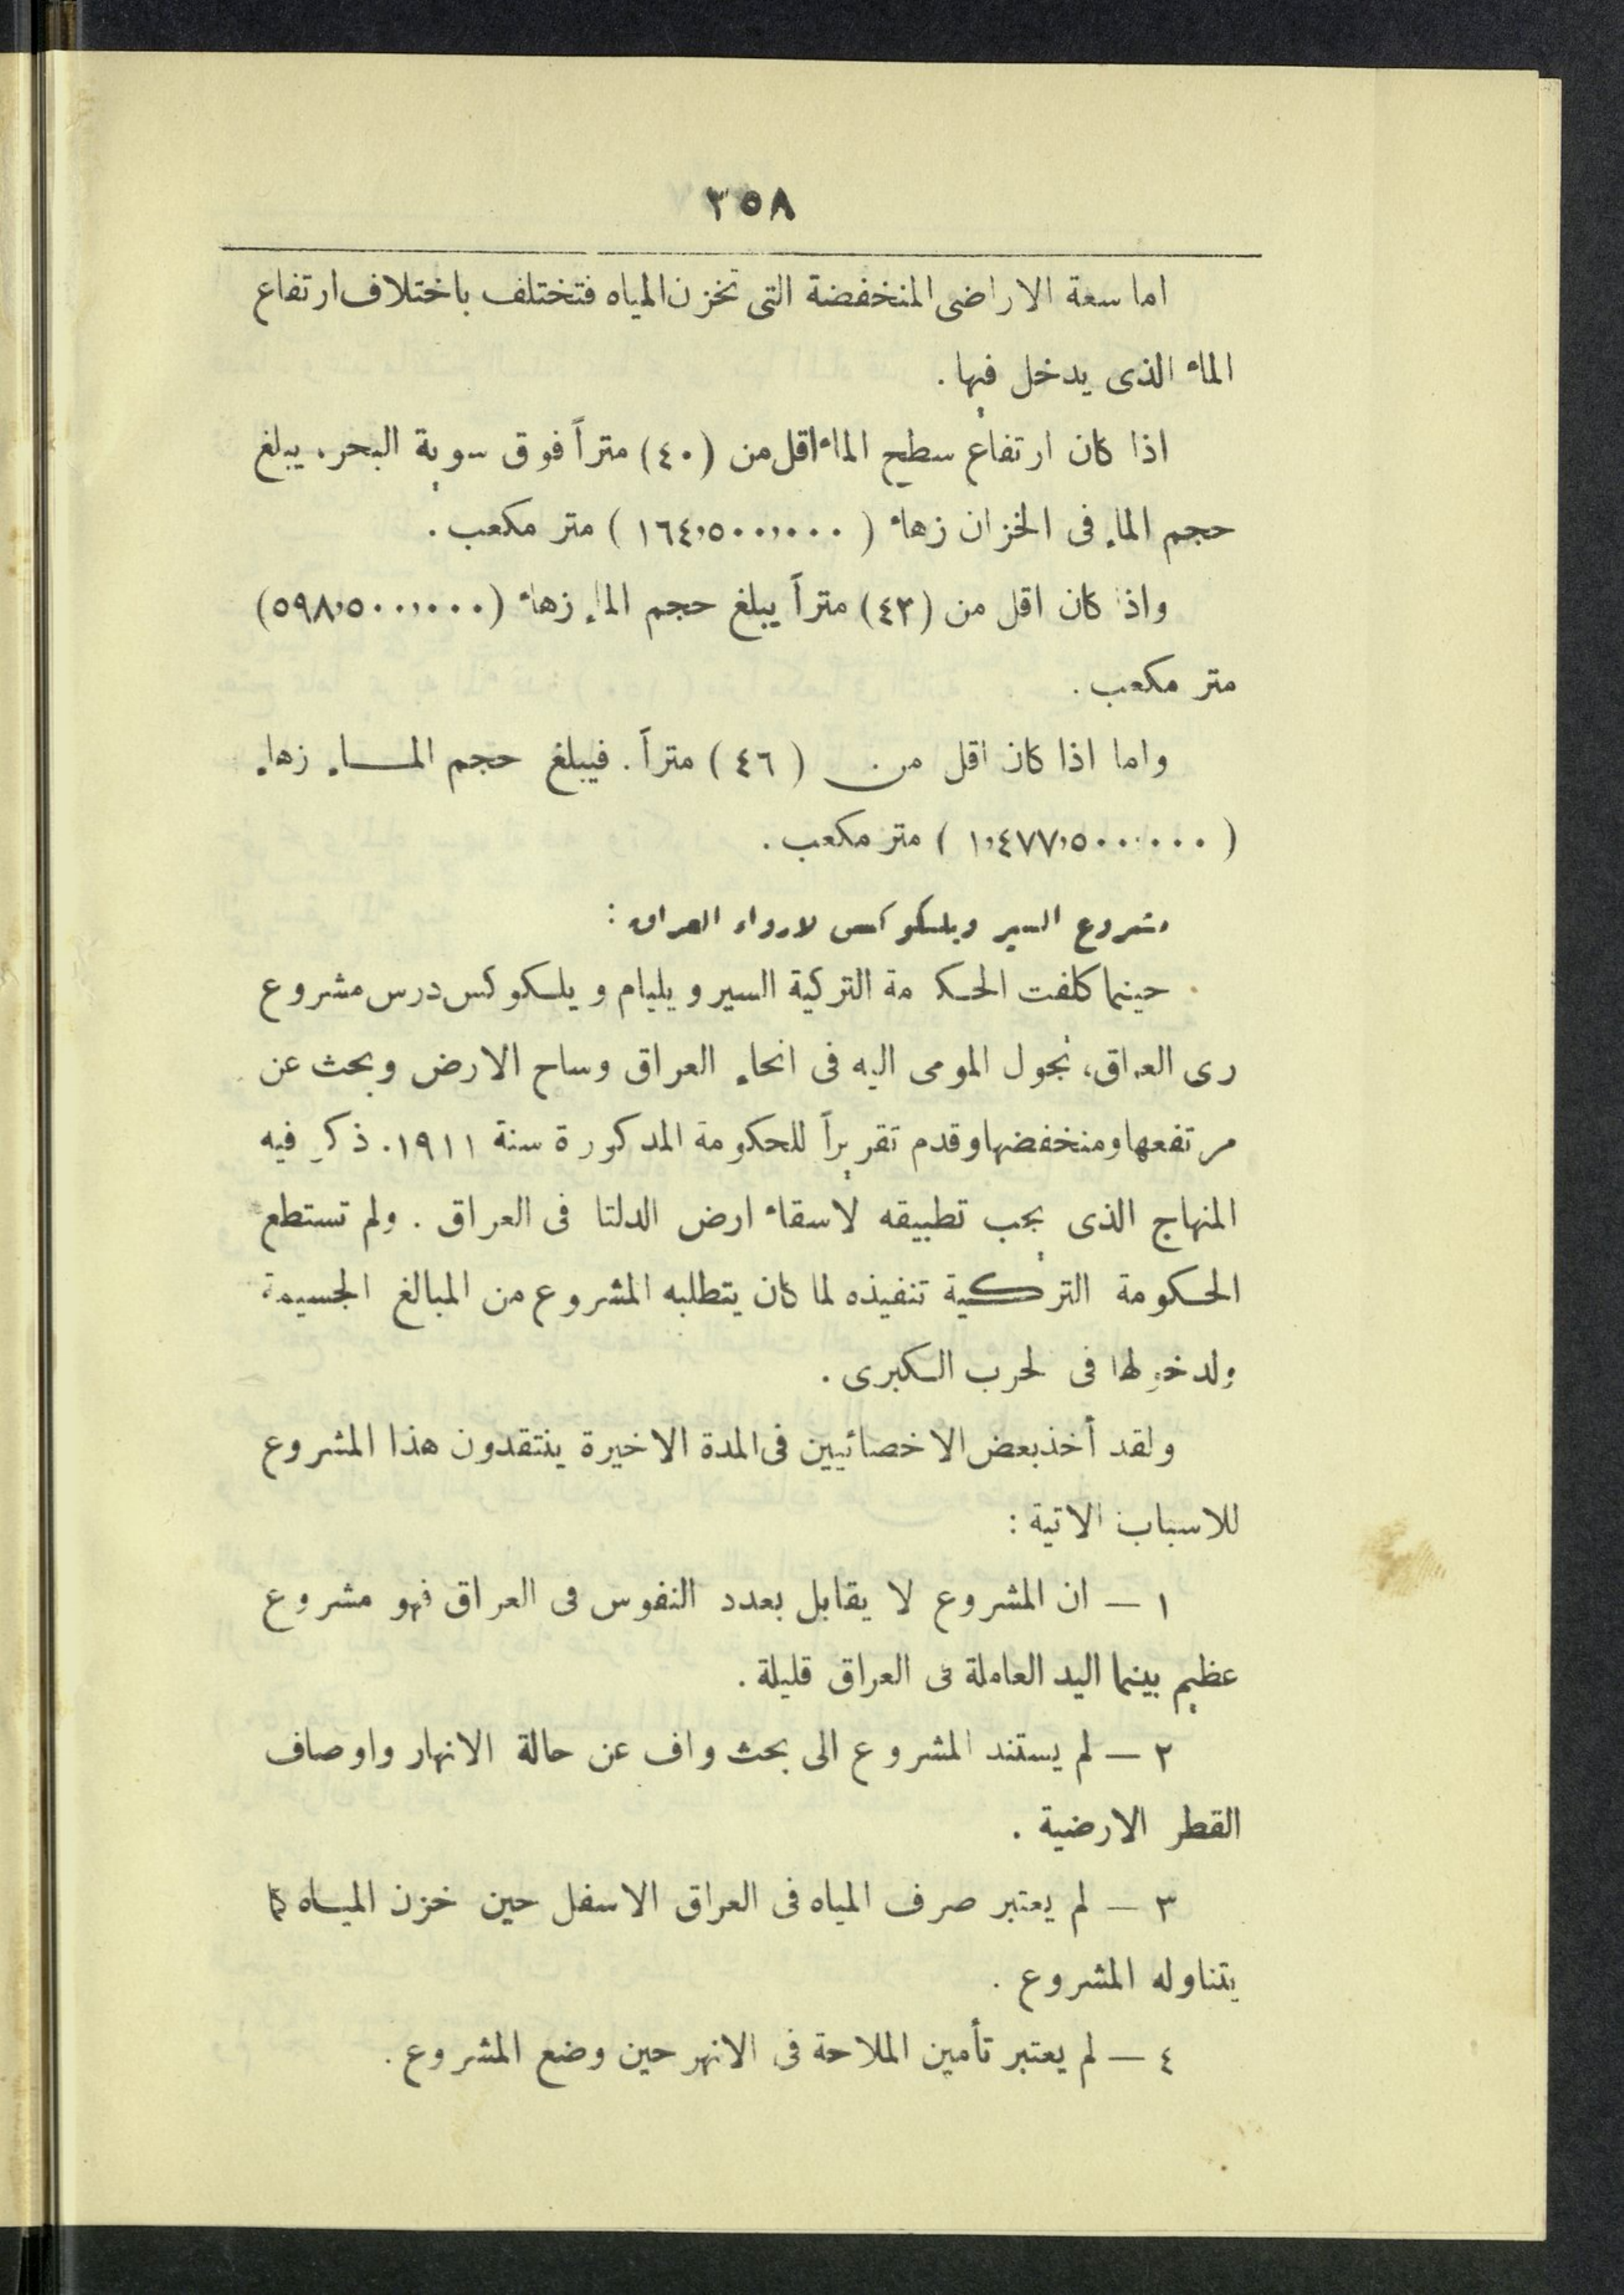 ٣٥٨
اما سعة الاراضى المنخفضة التى تخزن المياه فتختلف باختلاف ارتفاع
الماء الذى يدخل فيها .
اذا كان ارتفاع سطح الماء اقل من (٤٠) متراً فوق سوية البحر. يبلغ
حجم الماء فى الخزان زهاء ( ١٦٤,٥٠٠,٠٠٠ ) متر مكعب .
واذا كان اقل من (٤٣) متراً يبلغ حجم الماء زهاء (٥٩٨,٥٠٠,٠٠٠)
متر مكعب .
واما اذا كان اقل من ( ٤٦ ) متراً . فيبلغ حجم المــاء زهاء
( ١,٤٧٧,٥٠٠,٠٠٠ ) متر مكعب .
مشروع السير ويلسكوكس لارواء العراق :
حينما كلفت الحكومة التركية السير ويليام ويلسكوكس درس مشروع
رى العراق، تجول المومى اليه فى انحاء العراق وساح الارض وبحث عن
مرتفعها ومنخفضها وقدم تقريراً للحكومة المذكورة سنة ١٩١١. ذكر فيه
المنهاج الذى يجب تطبيقه لاسقاء ارض الدلتا فى العراق . ولم تستطع
الحكومة التركية تنفيذه لما كان يتطلبه المشروع من المبالغ الجسيمة
ولدخولها فى الحرب الكبرى .
ولقد أخذ بعض الاخصائيين فى المدة الاخيرة ينتقدون هذا المشروع
للاسباب الاتية :
١ — ان المشروع لا يقابل بعدد النفوس فى العراق فهو مشروع
عظيم بينما اليد العاملة فى العراق قليلة .
٢ — لم يستند المشروع الى بحث واف عن حالة الانهار واوصاف
القطر الارضية .
٣ — لم يعتبر صرف المياه فى العراق الاسفل حين خزن الميــاه كما
يتناوله المشروع .
٤ — لم يعتبر تأمين الملاحة فى الانهر حين وضع المشروع .